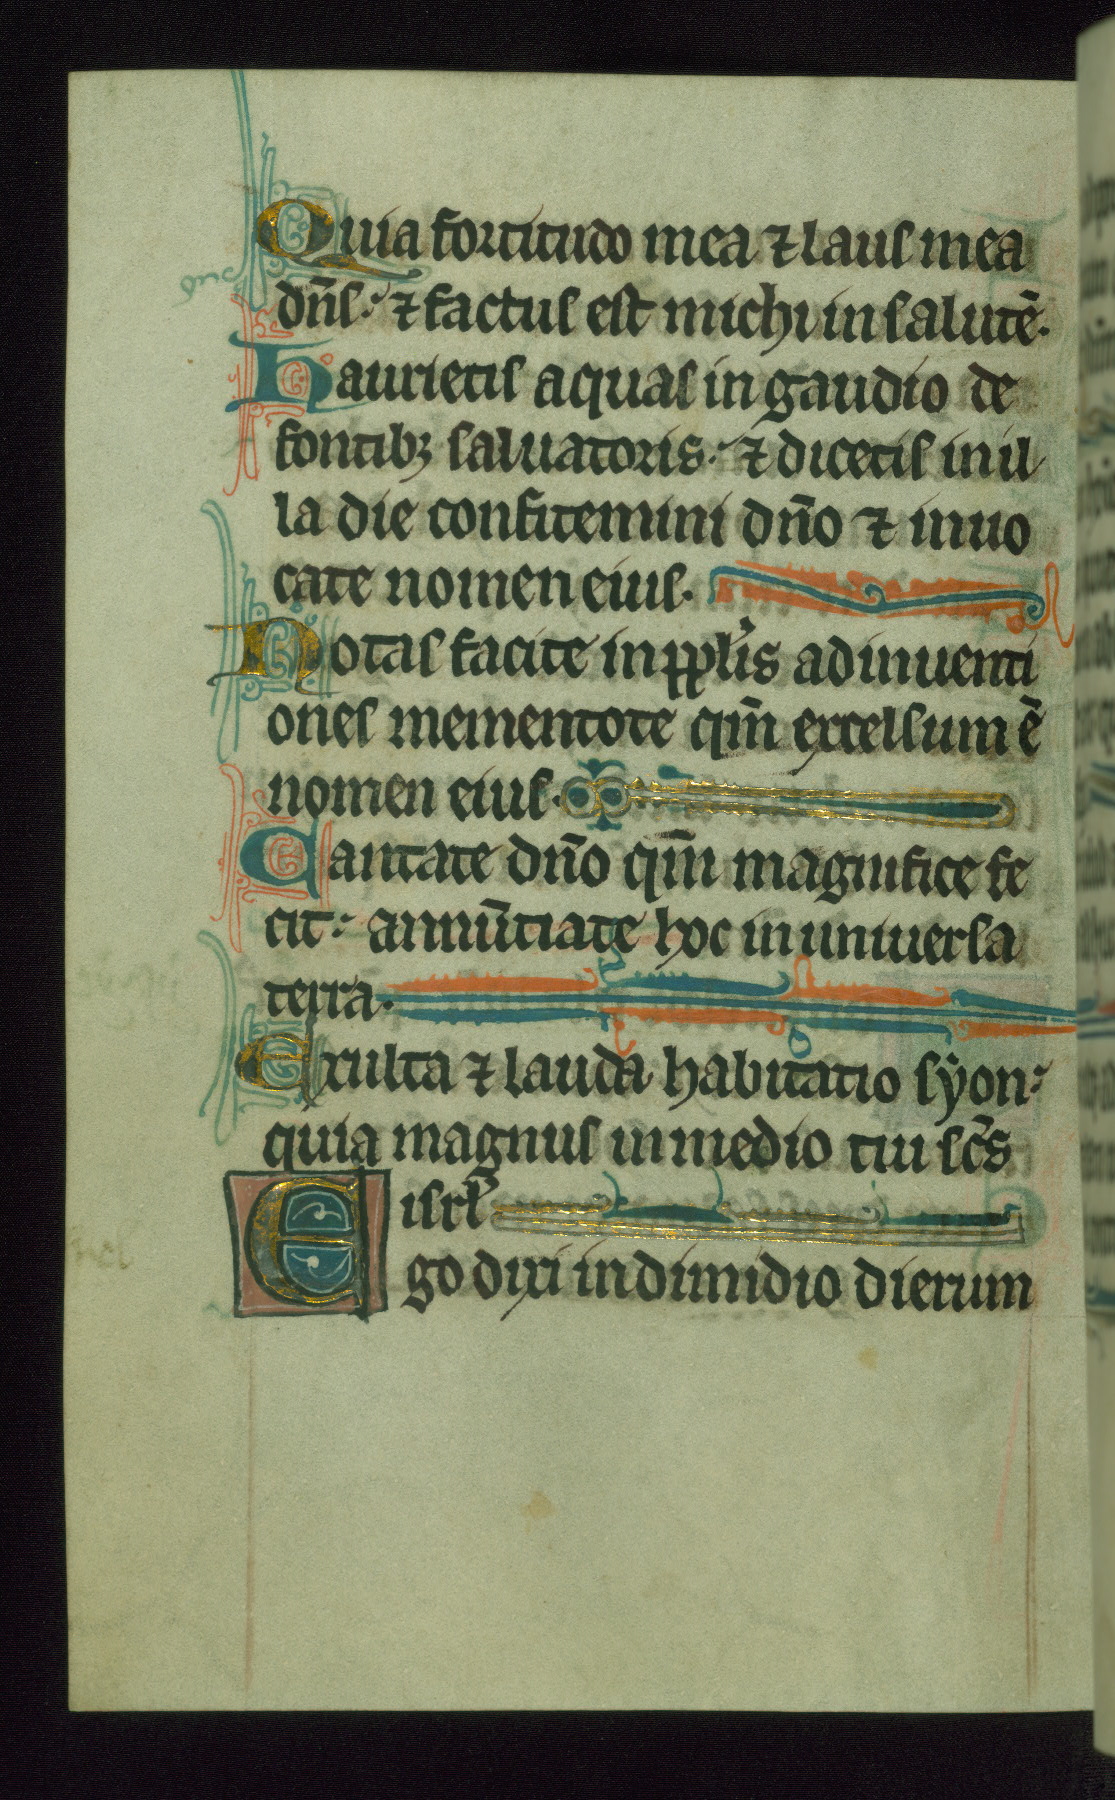 Quia fortitudo mea ⁊ laus mea
dn̄s· ⁊ factus est michi in salutē·
Haurietis aquas in gaudio de
fontibꝫ saluatoris· ⁊ dicetis in il
la die confitemini dn̄o ⁊ inuo
cate nomen eius·
Notas facite in ppl̓is adinuenti
ones mementote qm̄ excelsum ē
nomen eius·
Cantate dn̄o qm̄ magnifice fe
cit· annūtiate hoc in uniuersa
terra·
Exulta ⁊ lauda habitatio syon·
quia magnus in medio tui sc̄s
isrl̓
Ego dixi in dimidio dierum